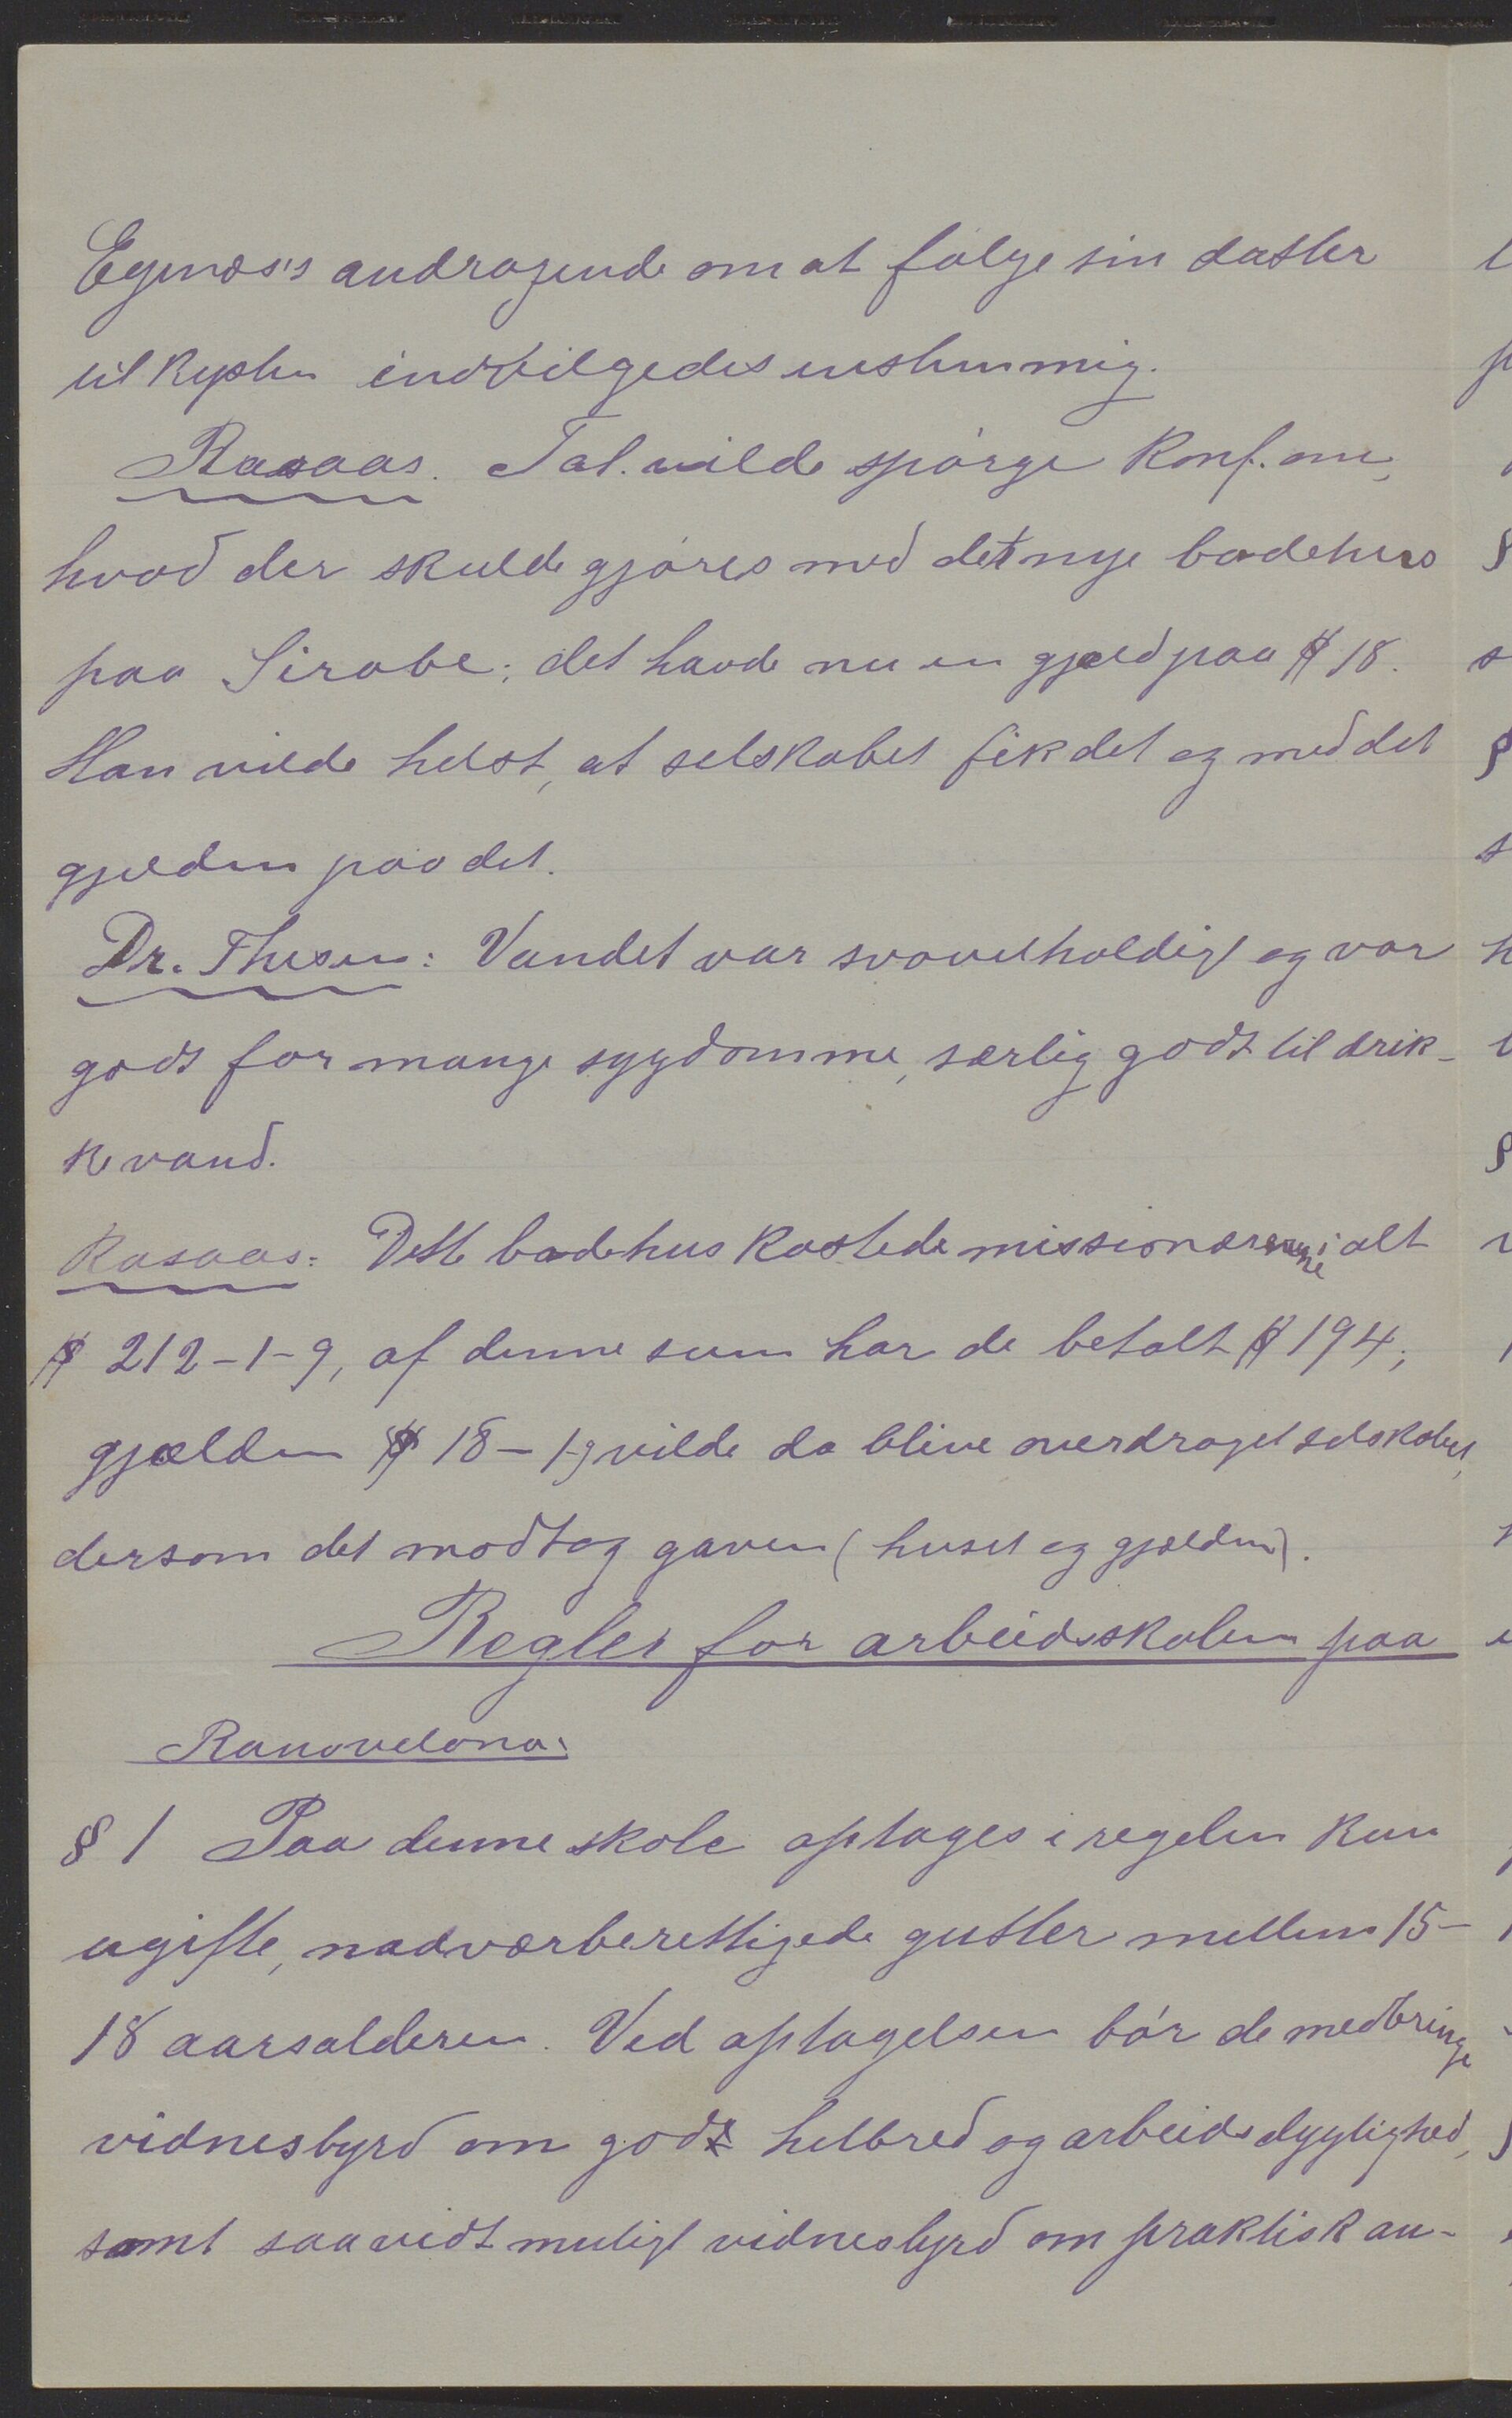 Egenæs's andragende om at følge sin datter
til kysten indvilgedes enstemmig.
Rasaas. Tal. vilde spørge konf. om,
hvad der skulde gjøres med det nye badehus
paa Sirabe; det havde nu en gjæld paa $ 18.
Han vilde helst, at selskabet fik det og med det
gjælden paa det.
Dr. Thesen: Vandet var svovelholdigt og var
godt for mange sygdomme, særlig godt til drik-
kevand.
Rasaas: Dette badehus kostede missionærerne i alt
$ 212-1-9, af denne sum har de betalt $ 194;
gjælden $ 18-1-9 vilde da blive overdraget selskabet,
dersom det modtog gaven (huset og gjælden).
Regler for arbeidsskolen paa
Ranovelona.
§ 1 Paa denne skole optages i regelen kun
ugifte, nadverberettigede gutter mellem 15-
18 aarsalderen. Ved optagelsen bør de medbringe
vidnesbyrd om godt helbred og arbeidsdygtighed,
samt saavidt muligt vidnesbyrd om praktisk an-